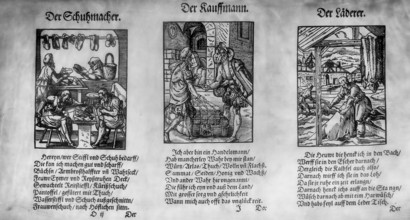 Der Schuhmacher.
Herein/wer Stiffl und Schuh bedarff/
Die kan ich machen gut und scharff/
Büchsn/Armbrosthalffter und Wahtseck/
Feuwr Eymer und Reyßtruhen Deck/
Gewachtelt Reitstieffl/Kürißschuch/
Pantoffel/gefütert mit Thuch/
Wasserstiffl und Schuch außgeschnittn/
Frauwenschuch/nach Höflichen sittn.
Der
Der Kauffmann.
Ich aber bin ein Handelsmann/
Hab mancherley Wahr bey mir stan/
Würtz/Arlas/Thuch/Wolln und Flachß
Sammat/Seiden/Honig und Wachß/
Und ander Wahr
Die führ ich eyn und auß dem Land/
Mit grosser sorg und gefehrlichkeit
Wann mich auch offt das unglück reit.
Der
Der Läderer.
Die Heuwt die henck ich in den Bach/
Werff sie in den Escher darnach/
Dergleich die Kalbfel auch also/
Darnach werff ich sie in das Loh/
Da sie ir ruhe ein zeit erlangn/
Darnach henck ichs auff an die Stangn/
Wüsch darnach ab mit eim Harwüsch/
Und habs feyl auff dem Leder Tisch.
Der